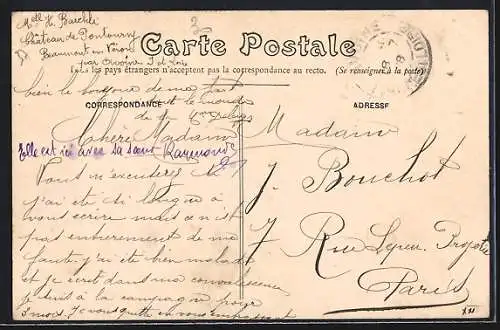 Mell H. Barchli
Château de Pontourny
Beaumont en Véron
par Avoine I et Loire
2
Carte Postale
Tous les pays étrangers n'acceptent pas la correspondance au recto. (Se renseigner à la poste)
bien le bonjour de ma part
à tout le monde
CORRESPONDANCE
ADRESSE
Chère Madame
Elle est ici avec sa sœur Raymonde
Vous m'excuserez si
j'ai été si longue à
vous écrire mais ce n'est
pas entièrement de ma
faute, j'ai été bien malade
et je suis dans ma convalescence
je suis à la campagne pour
3 mois. Je vous quitte en vous embrassant
Madame
J. Bouchot
7 Rue
Paris